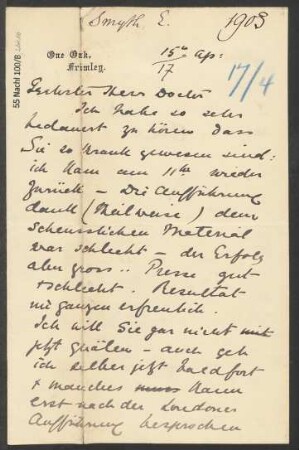 Smyth E.
1903
One Oak,
Frimley.
15th Ap:
17
17/4
55 Nachl 100/B
Geehrter Herr Doctor
Ich habe so sehr
bedauert zu hören dass
Sie so krank gewesen sind:
ich kam am 11ten wieder
zurück – Die Aufführung
dank (theilweise) dem
scheusslichen Material
war schlecht – der Erfolg
aber gross.. Presse gut
+ schlecht. Resultat
im ganzen erfreulich.
Ich will Sie gar nicht mit
jetzt quälen – auch geh
ich selber jetzt bald fort
+ manches muss kann
erst nach der Londoner
Aufführung besprochen